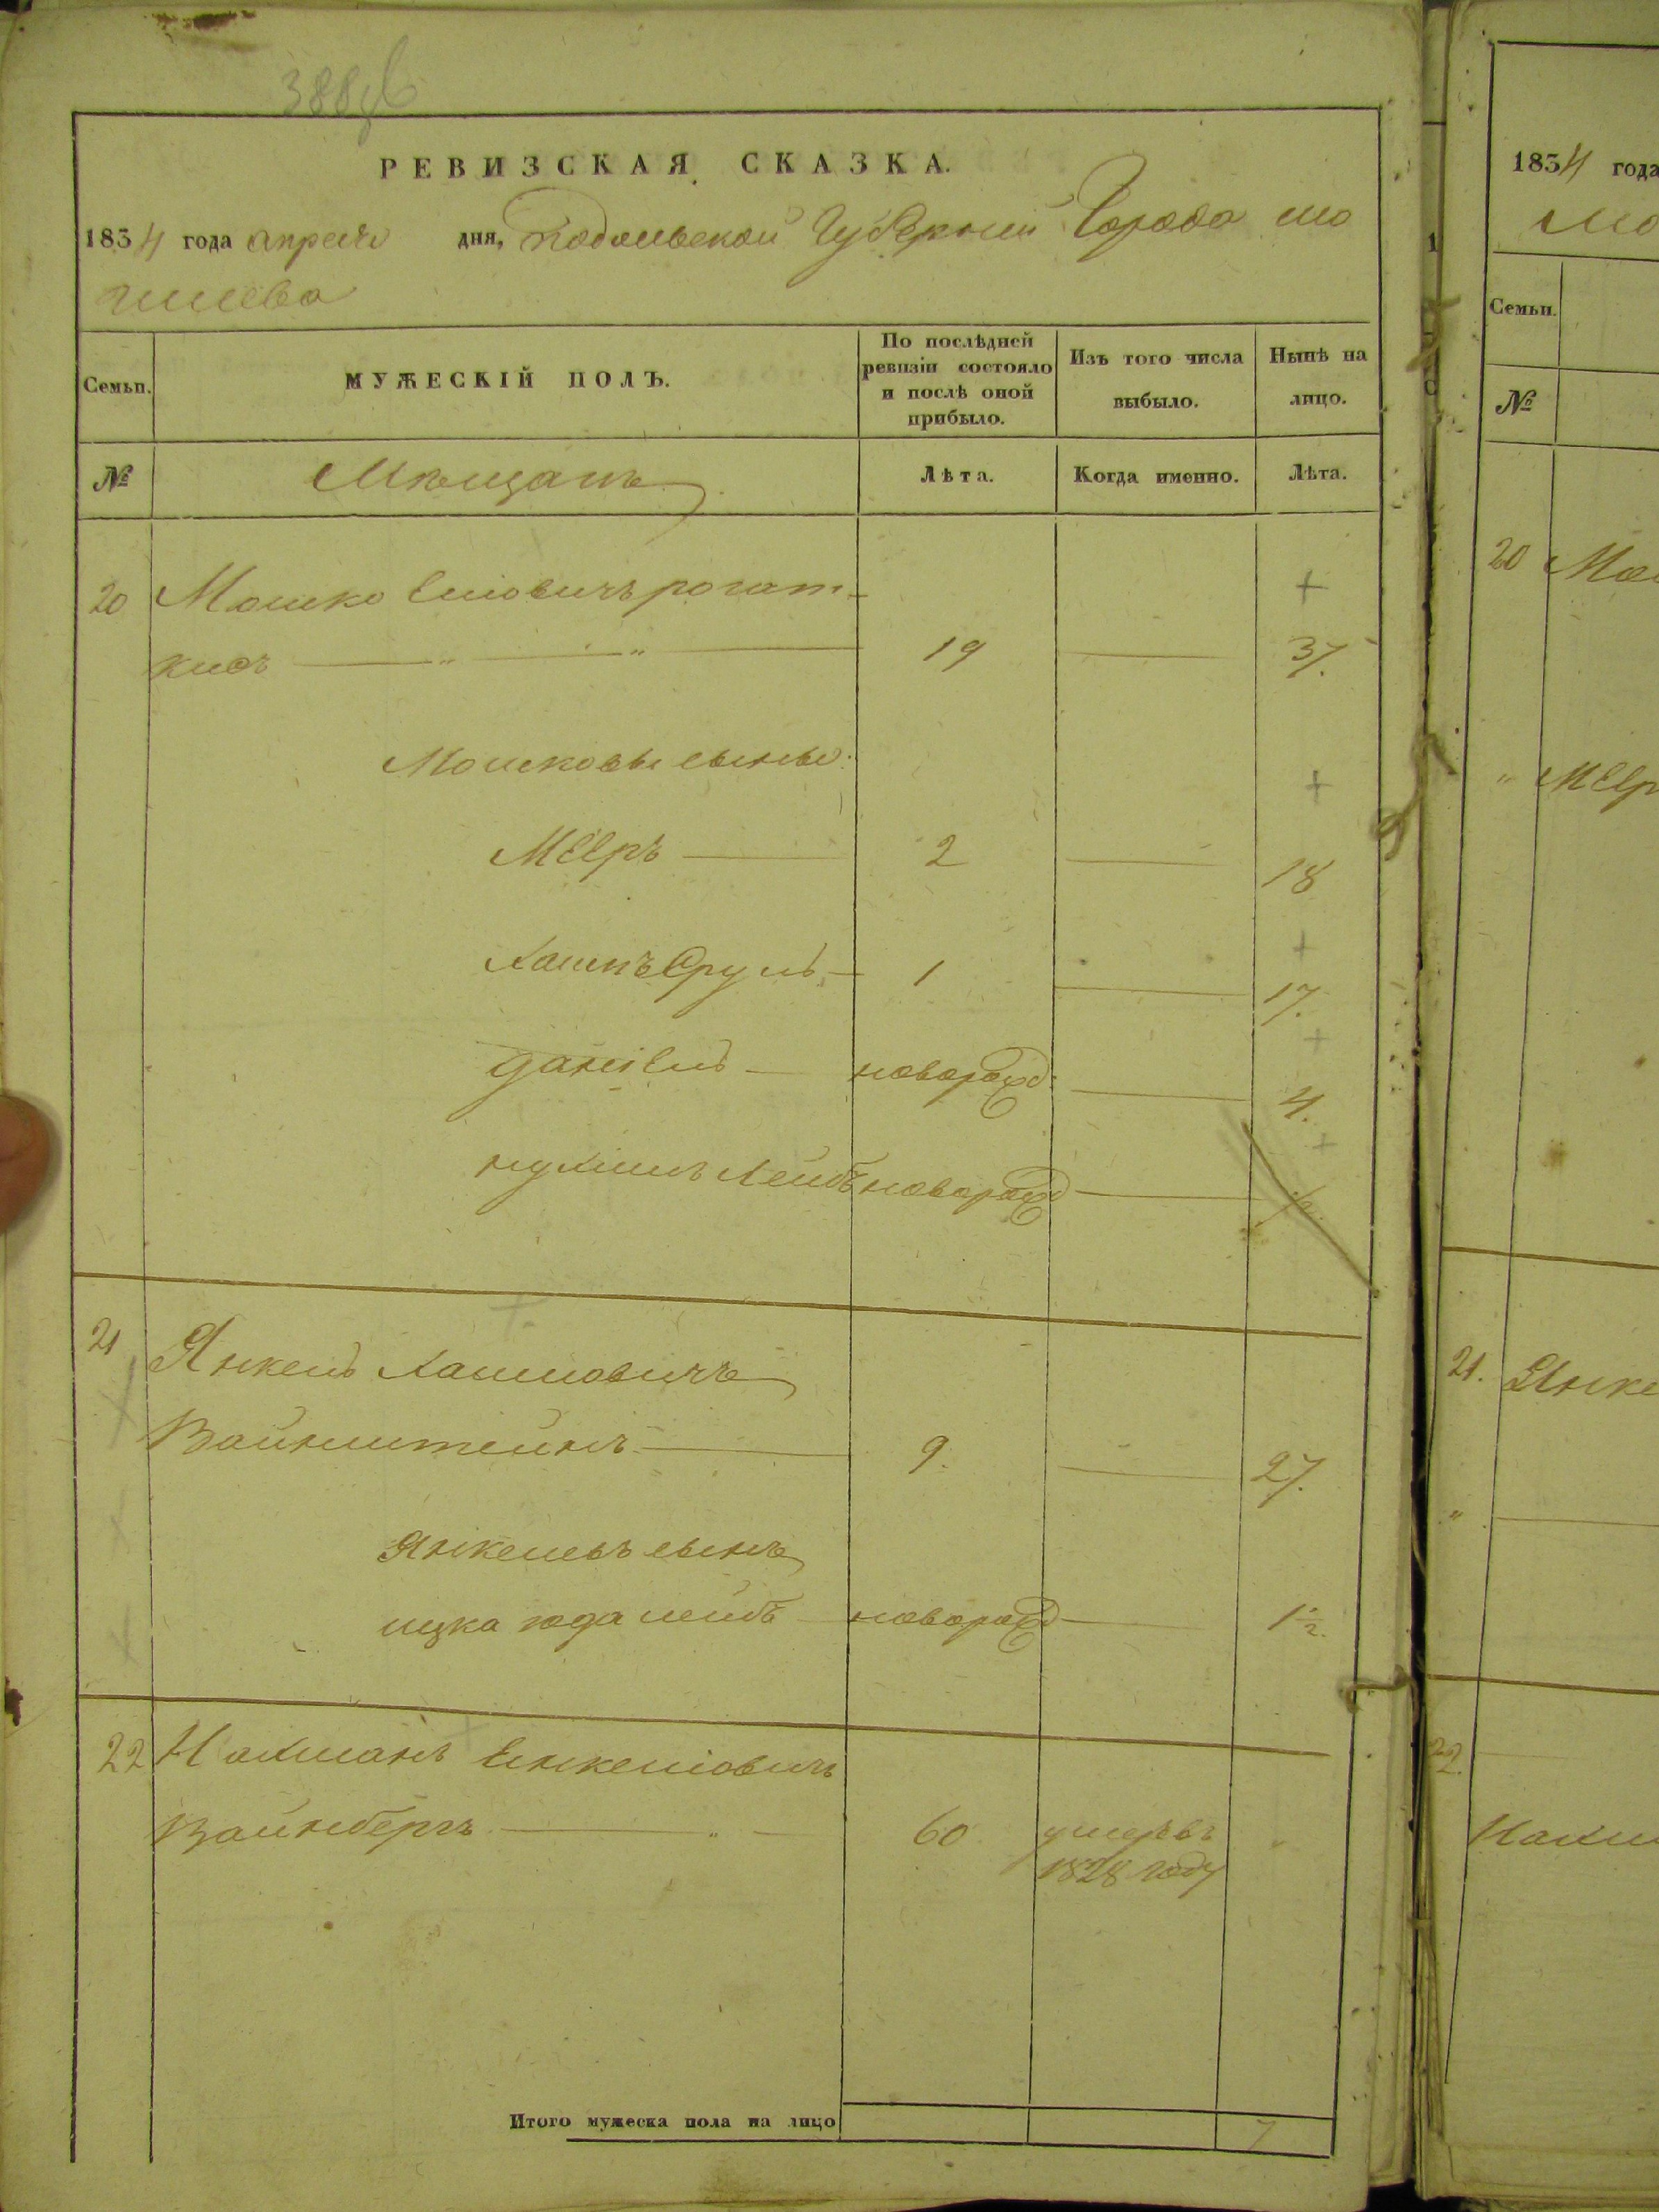 388об
РЕВИЗСКАЯ СКАЗКА.
1834 года апреля дня, Подольской Губернии Города Мо
гилева
Семьи.
МУЖЕСКІЙ ПОЛЪ.
По послѣдней ревизіи состояло и послѣ оной прибыло.
Изъ того числа выбыло.
Нынѣ на лицо.
№
Мѣщанъ
Лѣта.
Когда именно.
Лѣта.
20 Мошко Еліовичъ рогат-
19 37.
Мошковы сыны
Мееръ 2 18
Хаимъ Сруль 1 17.
Даніель новорожд: 4.
Нухимъ Лейбъ новорожд ½.
21 Янкель Хаимовичъ
Вайнштейнъ 9. 27.
Янкелевъ сынъ
ицка юда лейбъ новорожд 1½.
22 Нахманъ Енкеліовичъ
Вайнбергъ 60 умеръ въ
1828 году
Итого мужеска пола на лицо 7
1834 года
Мо
Семьи.
№
20
Меер
21. Янке
22.
Нахм